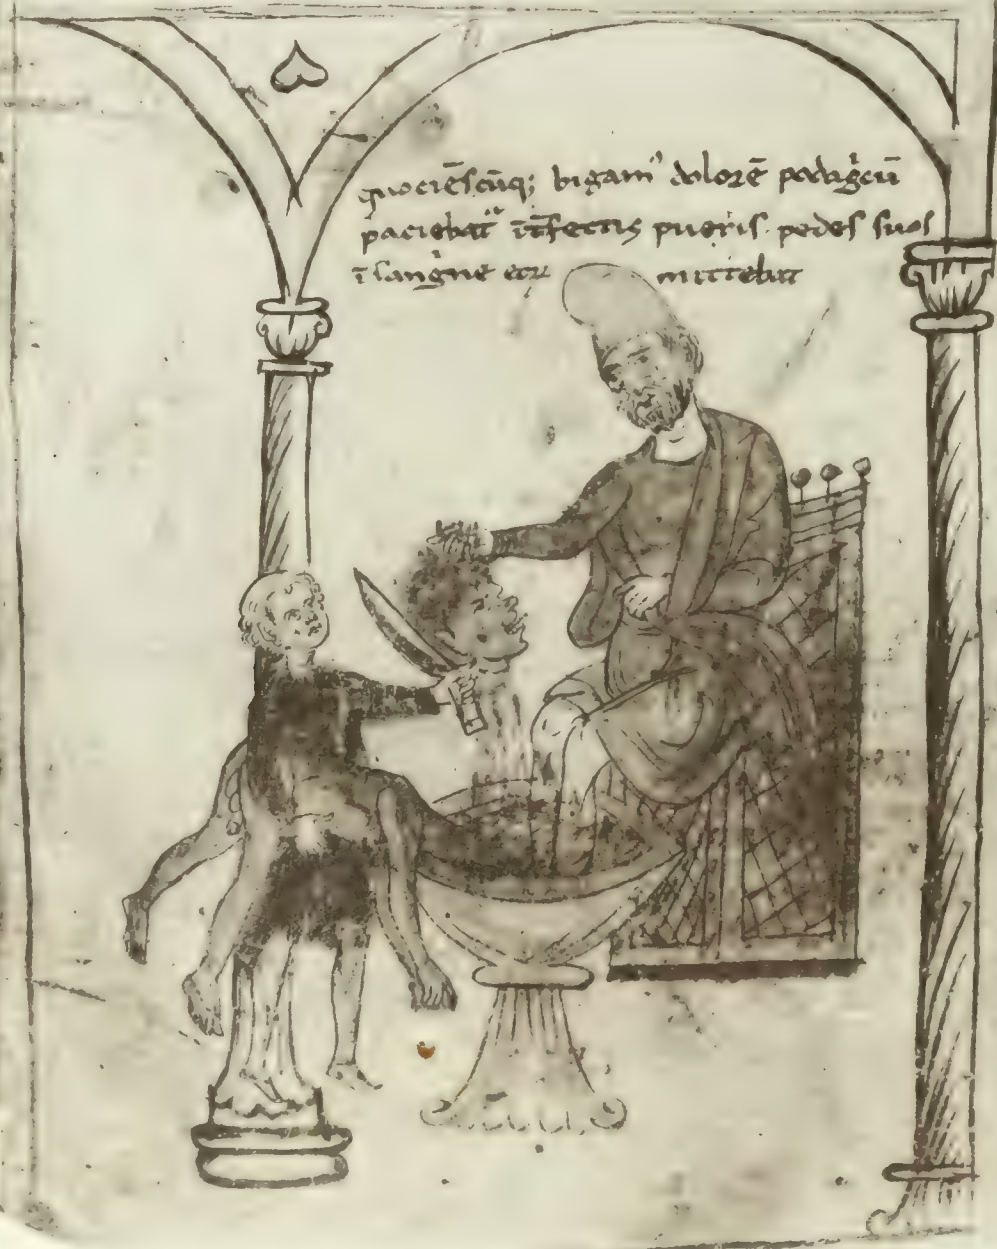 quociēscūq; bigam᾽ dolorē podag͛cū
paciebat᷑ īt̄fectis pueris pedes suos
ī sang͛ne eoꝝ mittebat